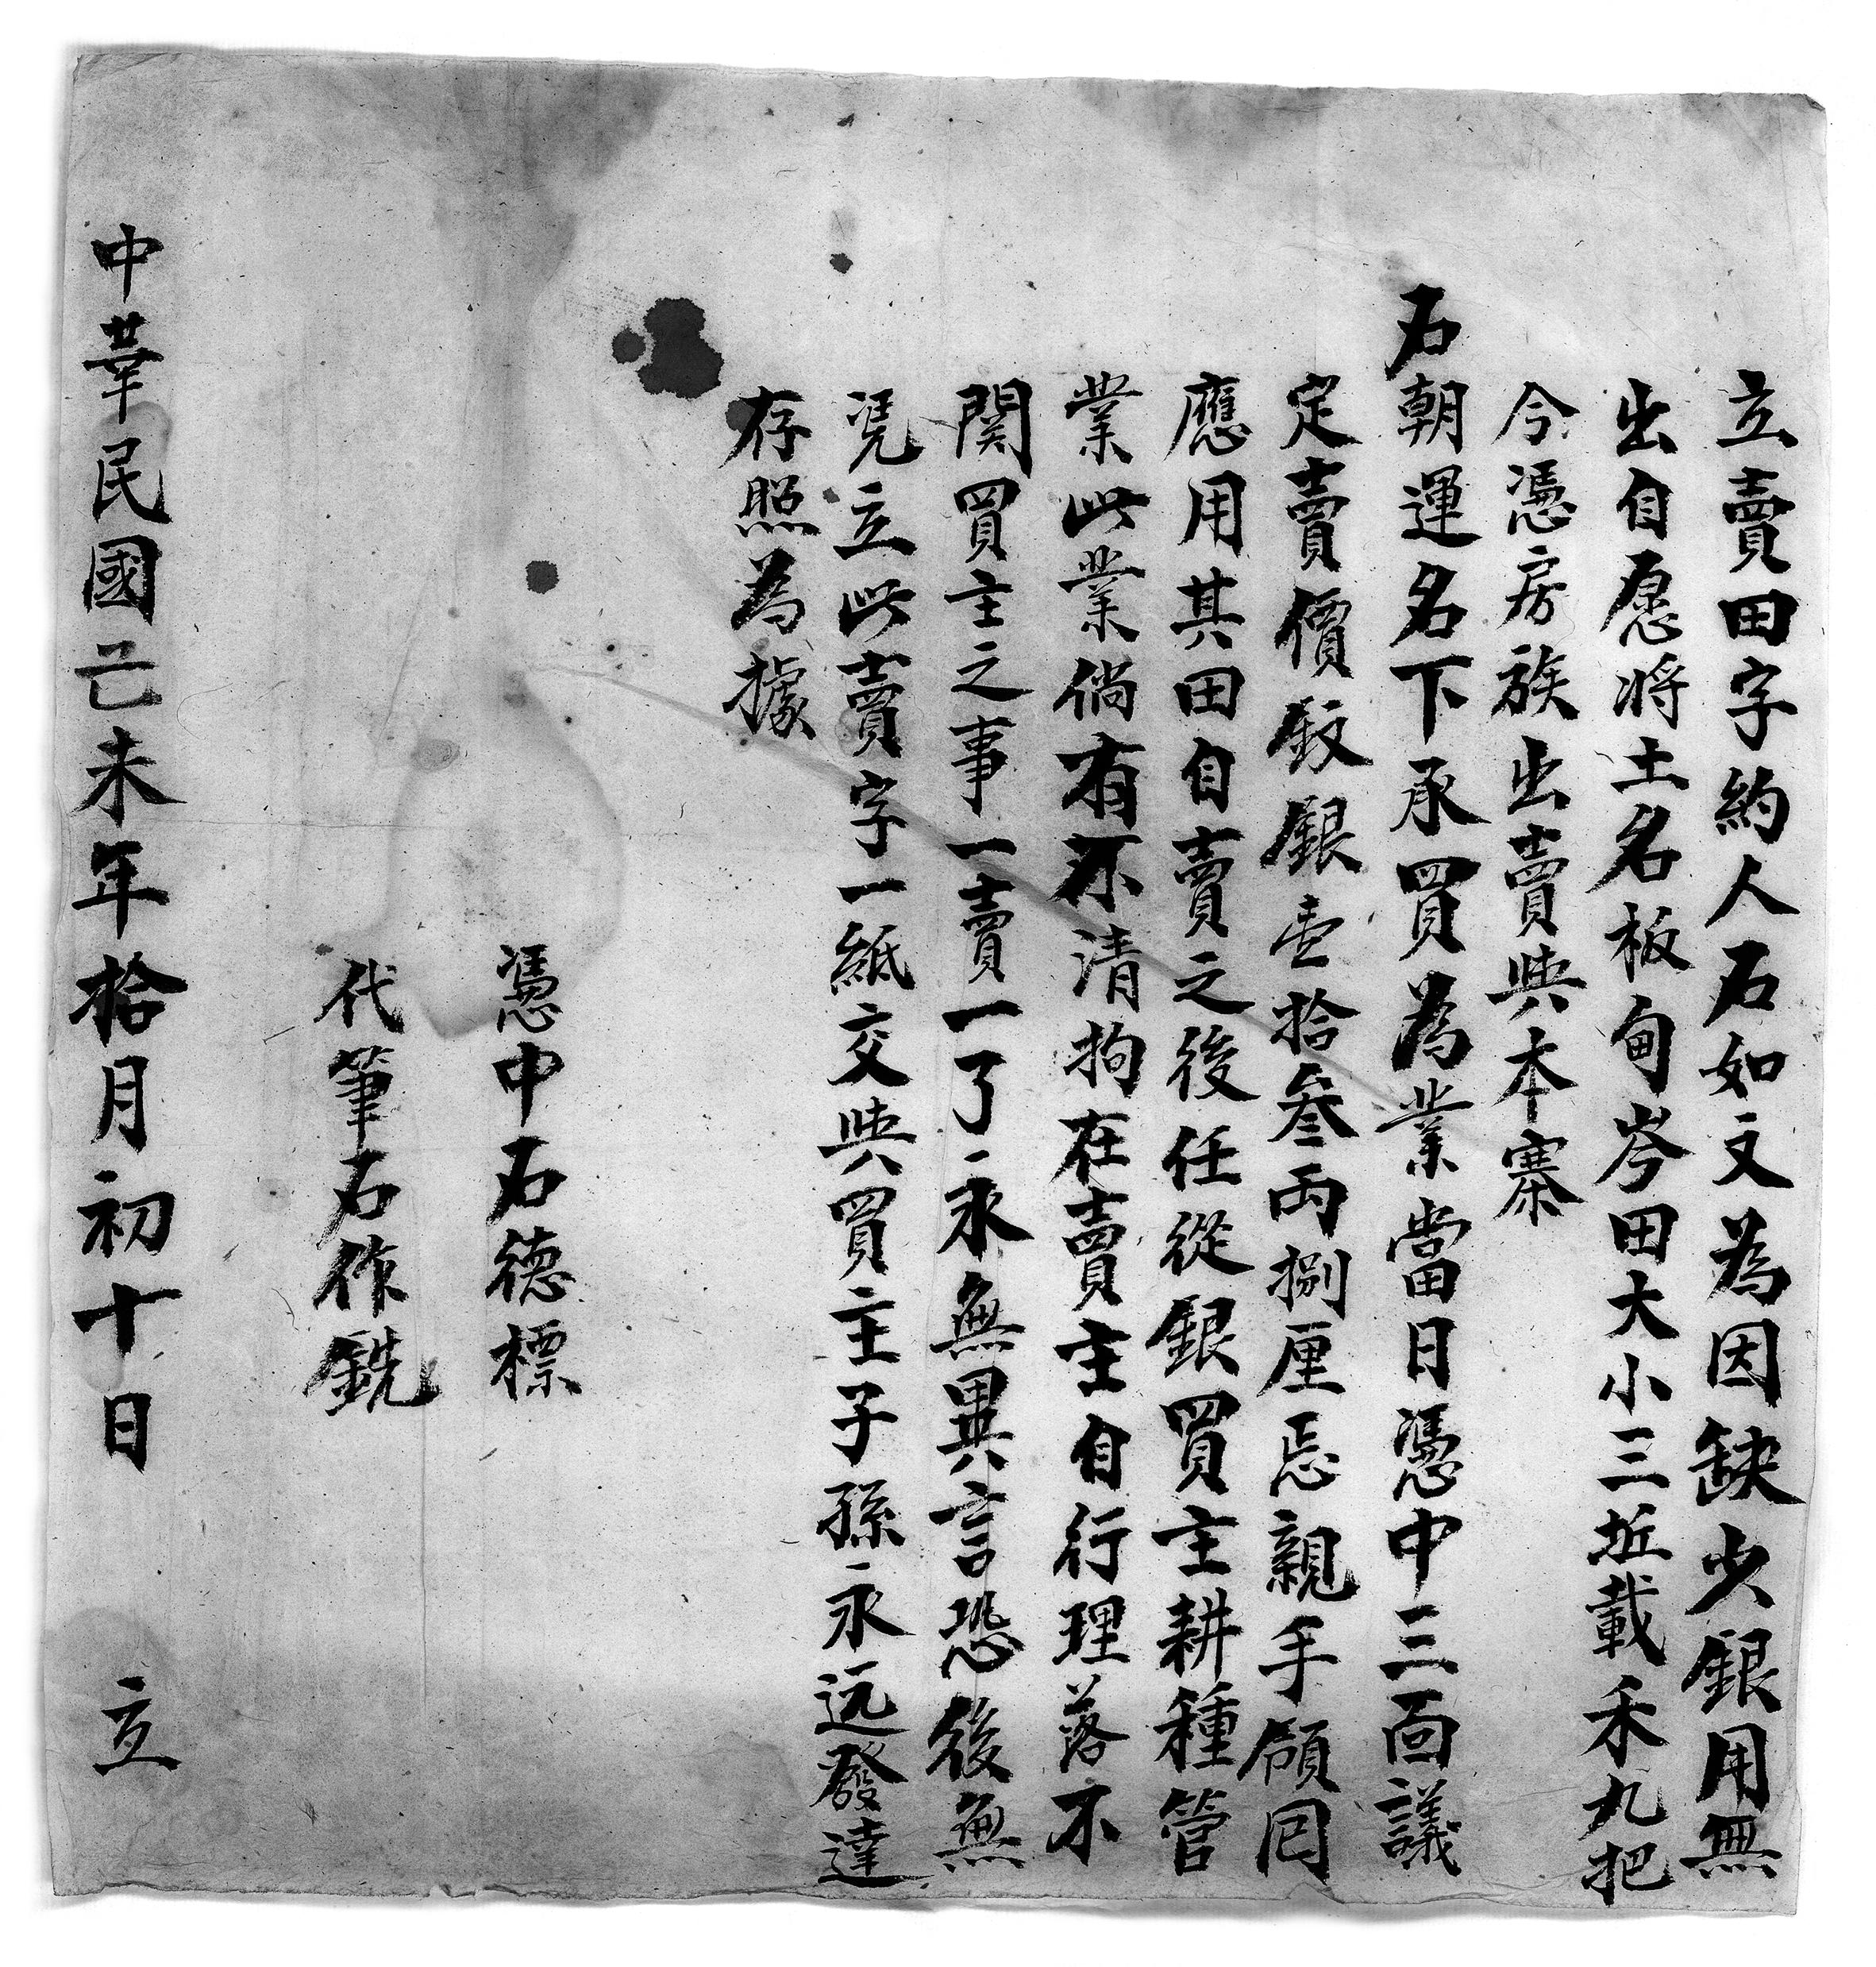 立賣田字約人石如文為因缺少銀用無
出自愿將土名板甸岑田大小三坵載禾九把
今憑房族出賣與本寨
石朝運名下承買為業當日憑中三面議
定賣價銀壹拾叁両捌厘忘親手領囘
應用其田自賣之後任從銀買主耕種管
業此業倘有不清拘在賣主自行理落不
関買主之事一賣一了永無異言恐後無
凭立此賣字一紙交與買主子孫永远發達
存照為據
憑中石德標
代筆石作銑
中華民國己未年拾月初十日 立